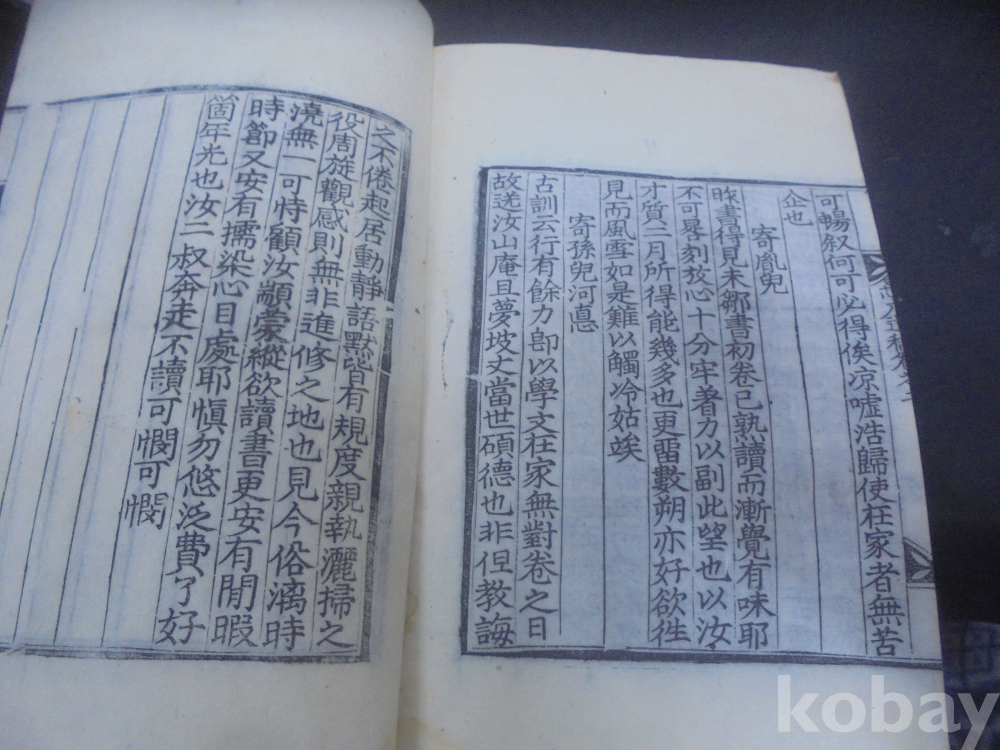 可暢叙何可必得俟凉嘘浩歸使在家者無苦
企也
寄胤兒
昨書得見未鄒書初卷已熟讀而漸覺有味耶
不可晷刻放心十分牢著力以副此望也以汝
才質二月所得能幾多也更留數朔亦好欲徃
見而風雪如是難以觸冷姑竢
寄孫兒河悳
古訓云行有餘力卽以學文在家無對卷之日
故送汝山庵且夢坡丈當世碩德也非但教誨
之不倦起居動靜語黙皆有規度親執灑掃之
役周旋觀感則無非進修之地也見今俗漓時
澆無一可恃顧汝顓蒙縱欲讀書更安有閒暇
時節又安有擩染心目處耶愼勿悠泛費了好
箇年光也汝二叔奔走不讀可憫可憫
kobay